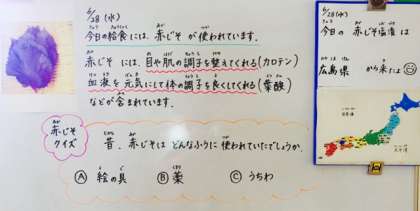 6/28(水)
今日の給食には、赤じそ が使われています。
赤じそ には、目や肌の調子を整えてくれる(カロテン)
血液を元気にして体の調子を良くしてくれる(葉酸)
などが含まれています。
赤じそ
クイズ
昔、赤じそは どんなふうに使われていたでしょうか。
Ⓐ 絵の具 Ⓑ 薬 Ⓒ うちわ
6/28(水)
今日の 赤じそ塩漬 は
広島県 から来たよ